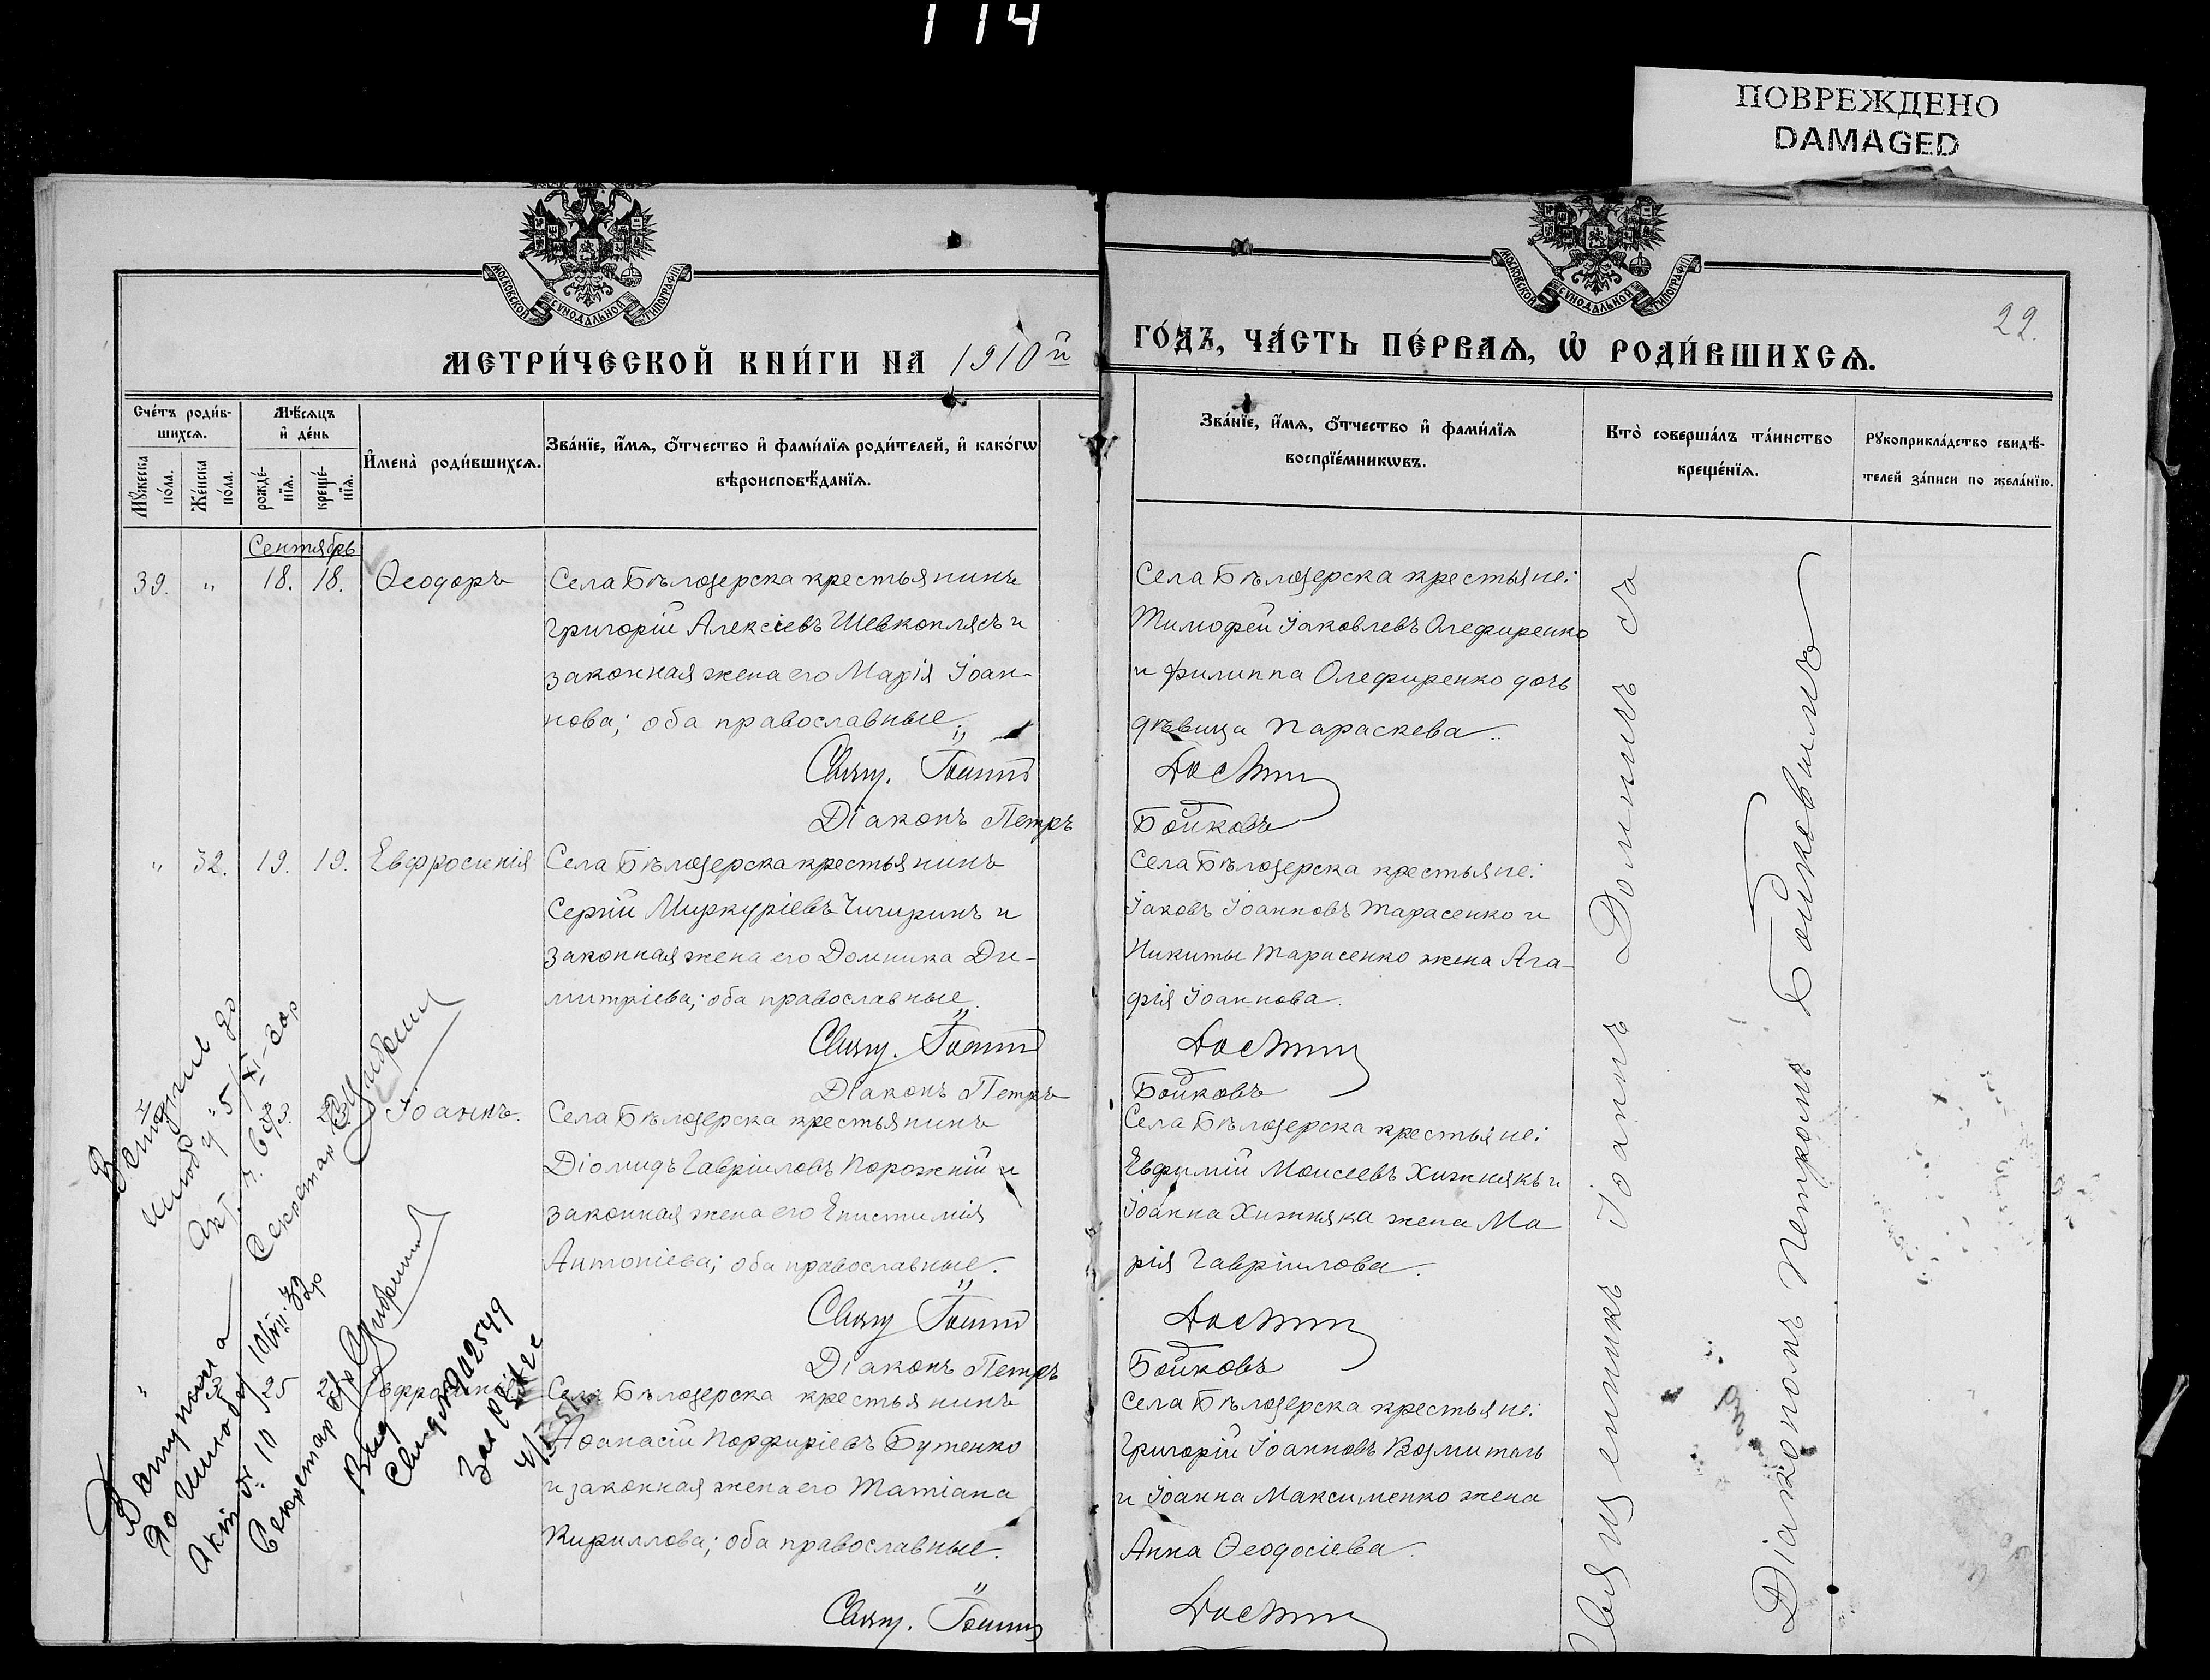 114
ПОВРЕЖДЕНО
DAMAGED
МОСКОВСКОЙ СѴНОДАЛЬНОЙ ТИПОГРАФІИ
МОСКОВСКОЙ СѴНОДАЛЬНОЙ ТИПОГРАФІИ
22.
МЕТРИ́ЧЕСКОЙ КНИ́ГИ НА 1910й
ГО́ДЪ, ЧА́СТЬ ПЕ́РВАѦ, Ѡ҆ РОДИ́ВШИХСѦ.
Сче́тъ роди́в-
шихсѧ.
Мꙋ́жеска
по́ла.
Же́нска
по́ла.
Мѣ́сѧцъ
и҆ де́нь
рожде́-
нїѧ.
креще́-
нїѧ.
И҆мена̀ роди́вшихсѧ.
Зва́нїе, и҆́мѧ, ѻ҆́тчество и҆ фами́лїѧ роди́телей, и҆ како́гѡ
вѣроисповѣ́данїѧ.
Зва́нїе, и҆́мѧ, ѻ҆́тчество и҆ фами́лїѧ
воспрїе́мникѡвъ.
Кто̀ соверша́лъ та́инство
креще́нїѧ.
Рꙋкоприкла́дство свидѣ́-
телей за́писи по жела́нїю.
Сентябрь
39. " 18. 18. Ѳеодоръ
Села Бѣлозерска крестьянинъ
Григорій Алексіевъ Шевкоплясъ и
законная жена его Марія Іоан-
нова; оба православные.
Свящ. Іоаннъ
Діаконъ Петръ
Села Бѣлозерска крестьяне:
Тимофей Іаковлевъ Олефиренко
и Филиппа Олефиренко дочь
дѣвица Параскева.
Бойковъ
" 32. 19. 19. Евфросинія
Села Бѣлозерска крестьянинъ
Сергій Миркуріевъ Чигиринъ и
законная жена его Домника Ди-
митріева; оба православные.
Свящ. Іоаннъ
Діаконъ Петръ
Села Бѣлозерска крестьяне:
Іаковъ Іоанновъ Тарасенко и
Никиты Тарасенко жена Ага-
фія Іоаннова.
Бойковъ
Іоаннъ.
Села Бѣлозерска крестьянинъ
Діомидъ Гавріиловъ Порожній и
законная жена его Епистимія
Антоніева; оба православные.
Свящ Іоаннъ
Діаконъ Петръ
Села Бѣлозерска крестьяне:
Евфимій Моисеевъ Хижнякъ и
Іоанна Хижняка жена Ма
рія Гавріилова.
Бойковъ
Села Бѣлозерска крестьянинъ
Аѳанасій Порфиріевъ Бутенко
и законная жена его Татіана
Кириллова; оба православные.
Свящ. Іоаннъ
Села Бѣлозерска крестьяне:
Григорій Іоанновъ Возмитель
и Іоанна Максименко жена
Анна Ѳеодосіева.
Священникъ Іоаннъ
Діакономъ Петромъ
Вступила
Секретар